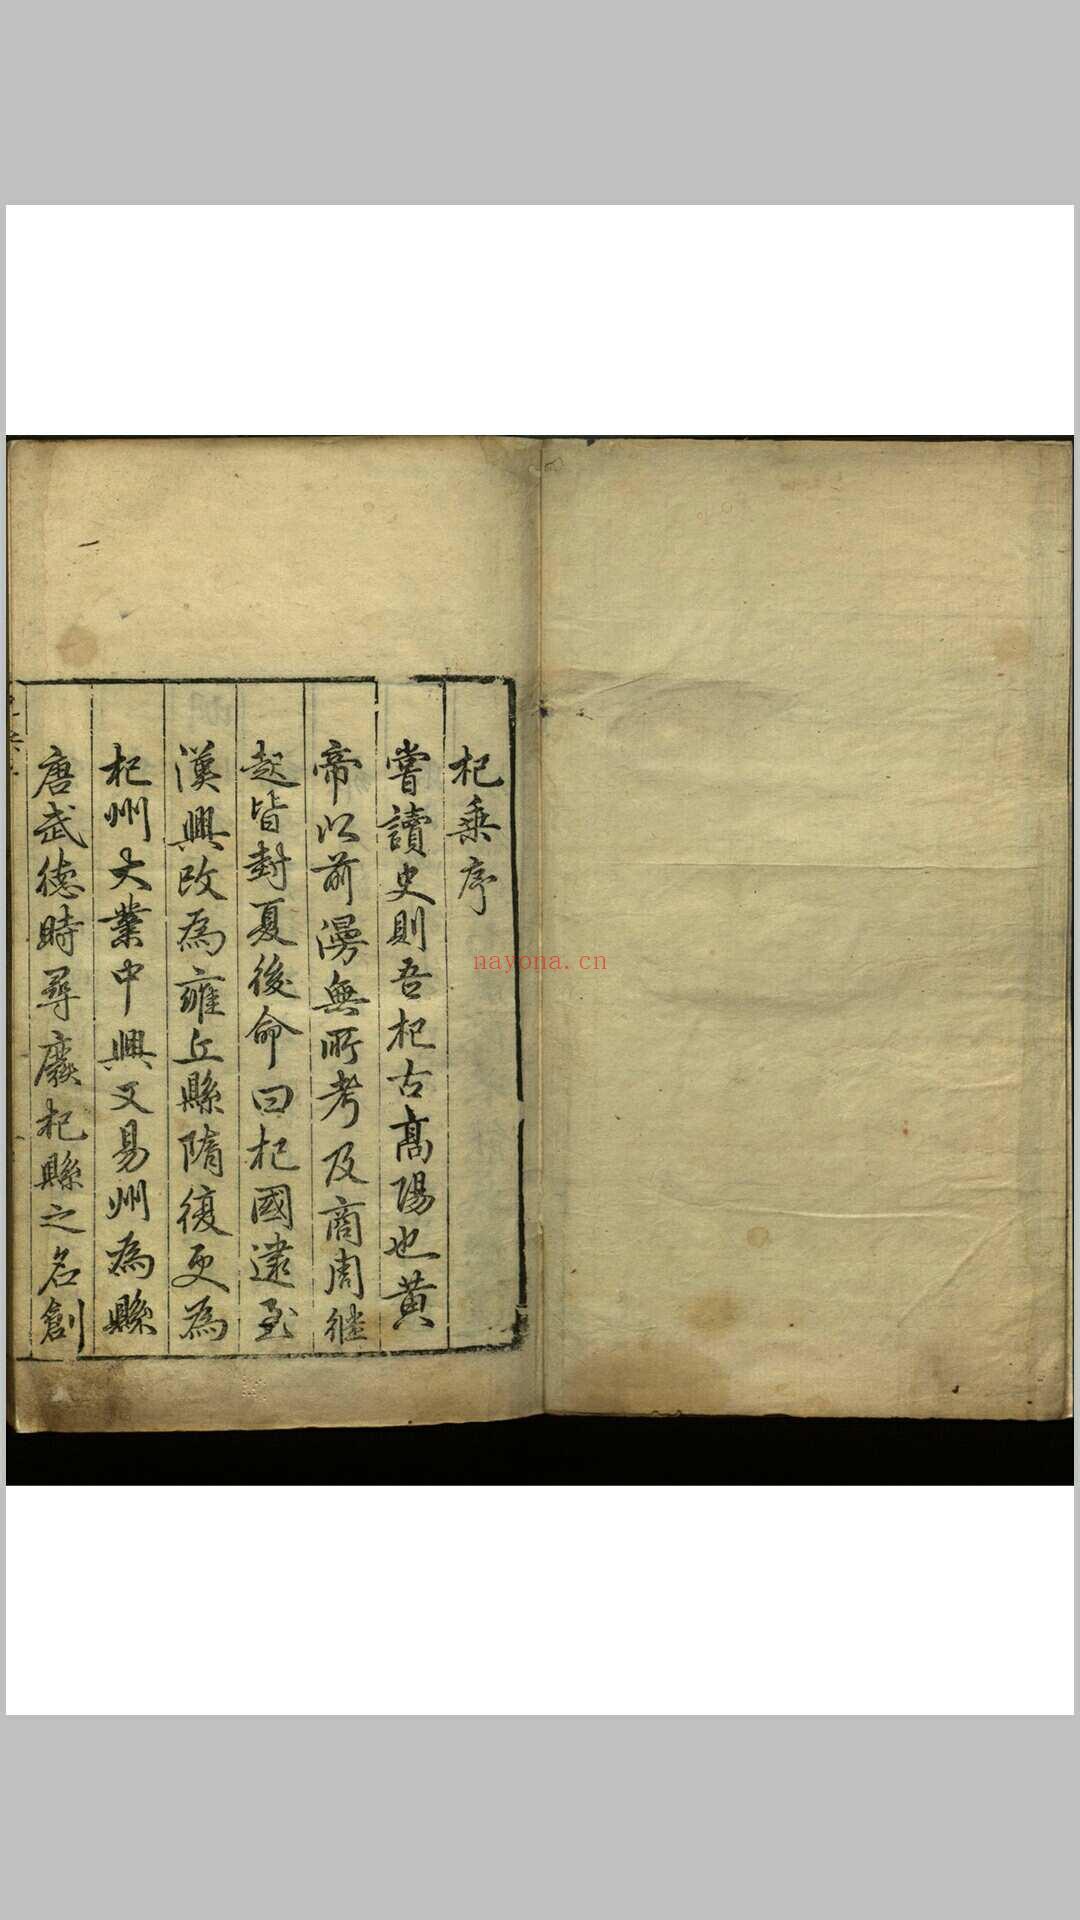 杞乗序
嘗讀史則吾杞古髙陽也黄
帝以前漫無所考及商周継
起皆封夏後命曰杞國逮至
漢興改為雍丘縣隋復更為
杞州大業中興又易州為縣
唐武德時尋廢杞縣之名創
nayona.cn